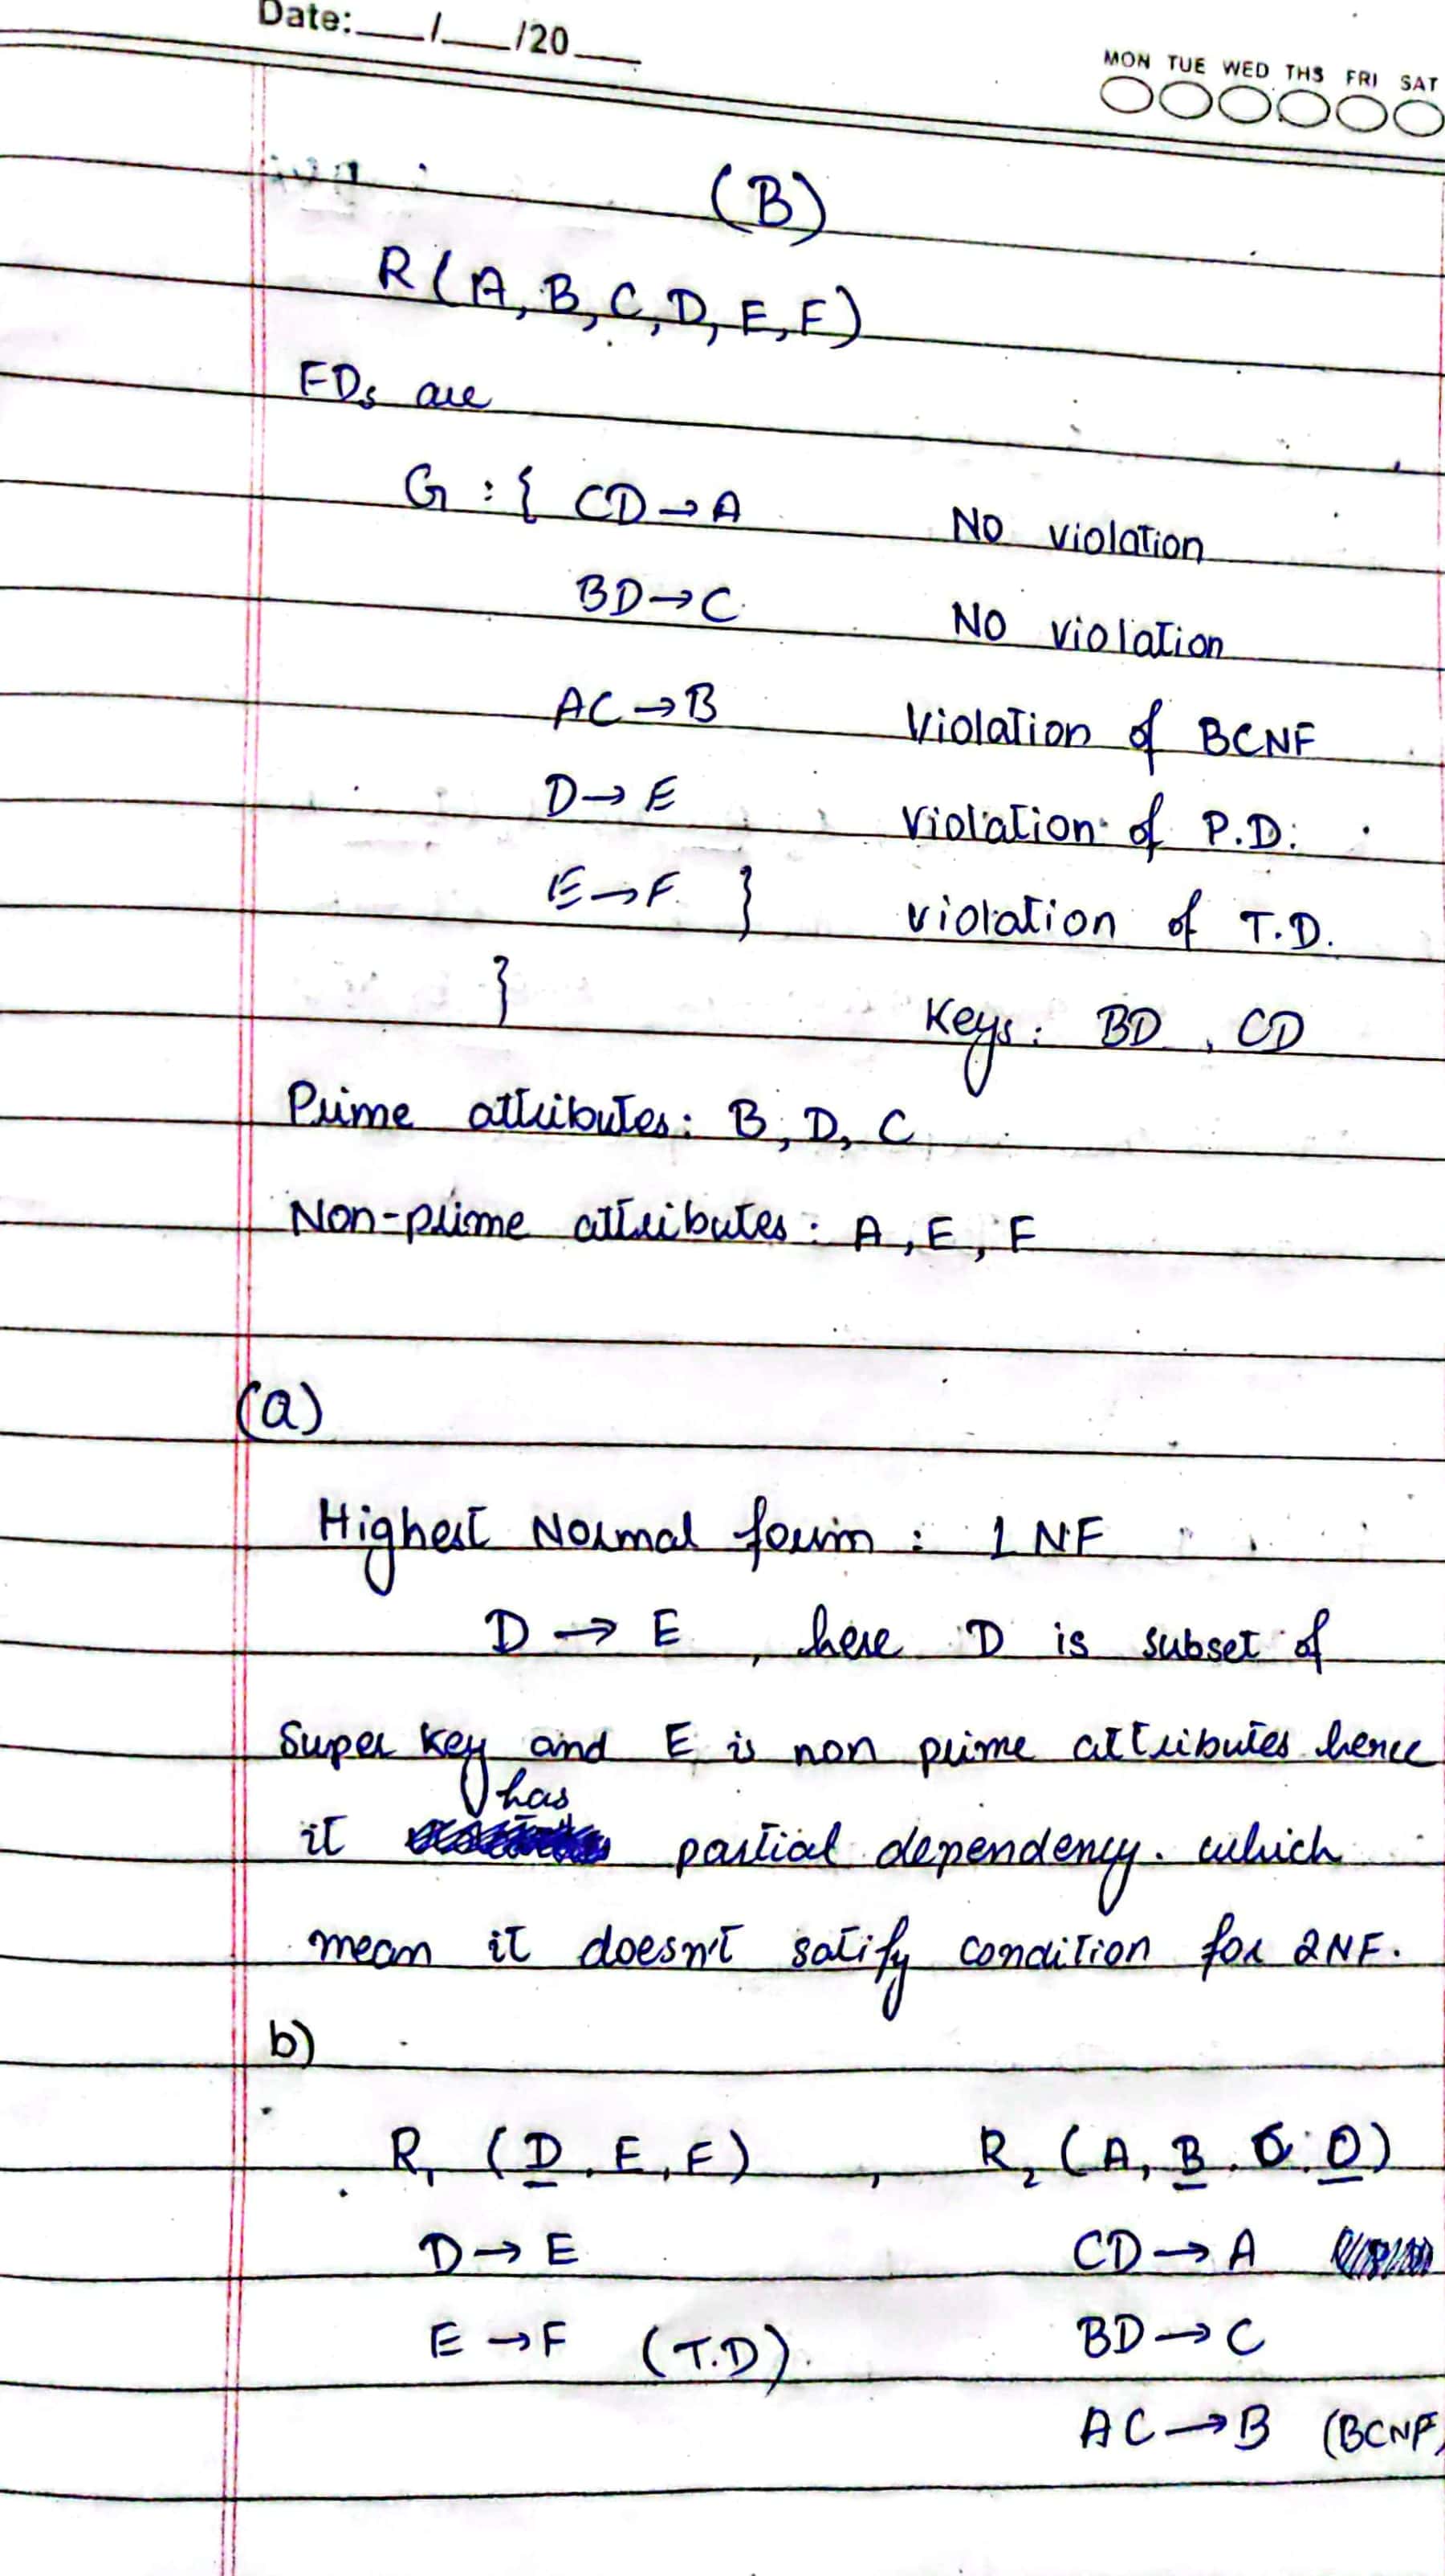 Date: ___/___/20___
MON TUE WED THS FRI SAT
(B)
R(A, B, C, D, E, F)
FDs are
G : { CD → A No violation
BD → C No violation
AC → B Violation of BCNF
D → E Violation of P.D.
E → F } violation of T.D.
}
Keys: BD, CD
Prime attributes: B, D, C
Non-prime attributes: A, E, F
(a)
Highest Normal form : 1NF
D → E, here D is subset of
Super key and E is non prime attributes hence
has
it partial dependency. which
mean it doesn't satify condition for 2NF.
b)
R₁ (D, E, F) , R₂ (A, B, C, D)
D → E CD → A
E → F (T.D). BD → C
AC → B (BCNF)